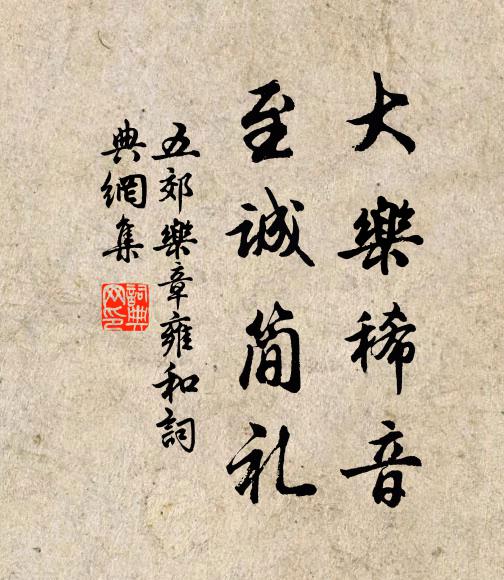 大樂稀音
至誠簡礼
五郊樂章雍和詞
典網集
詞典網印